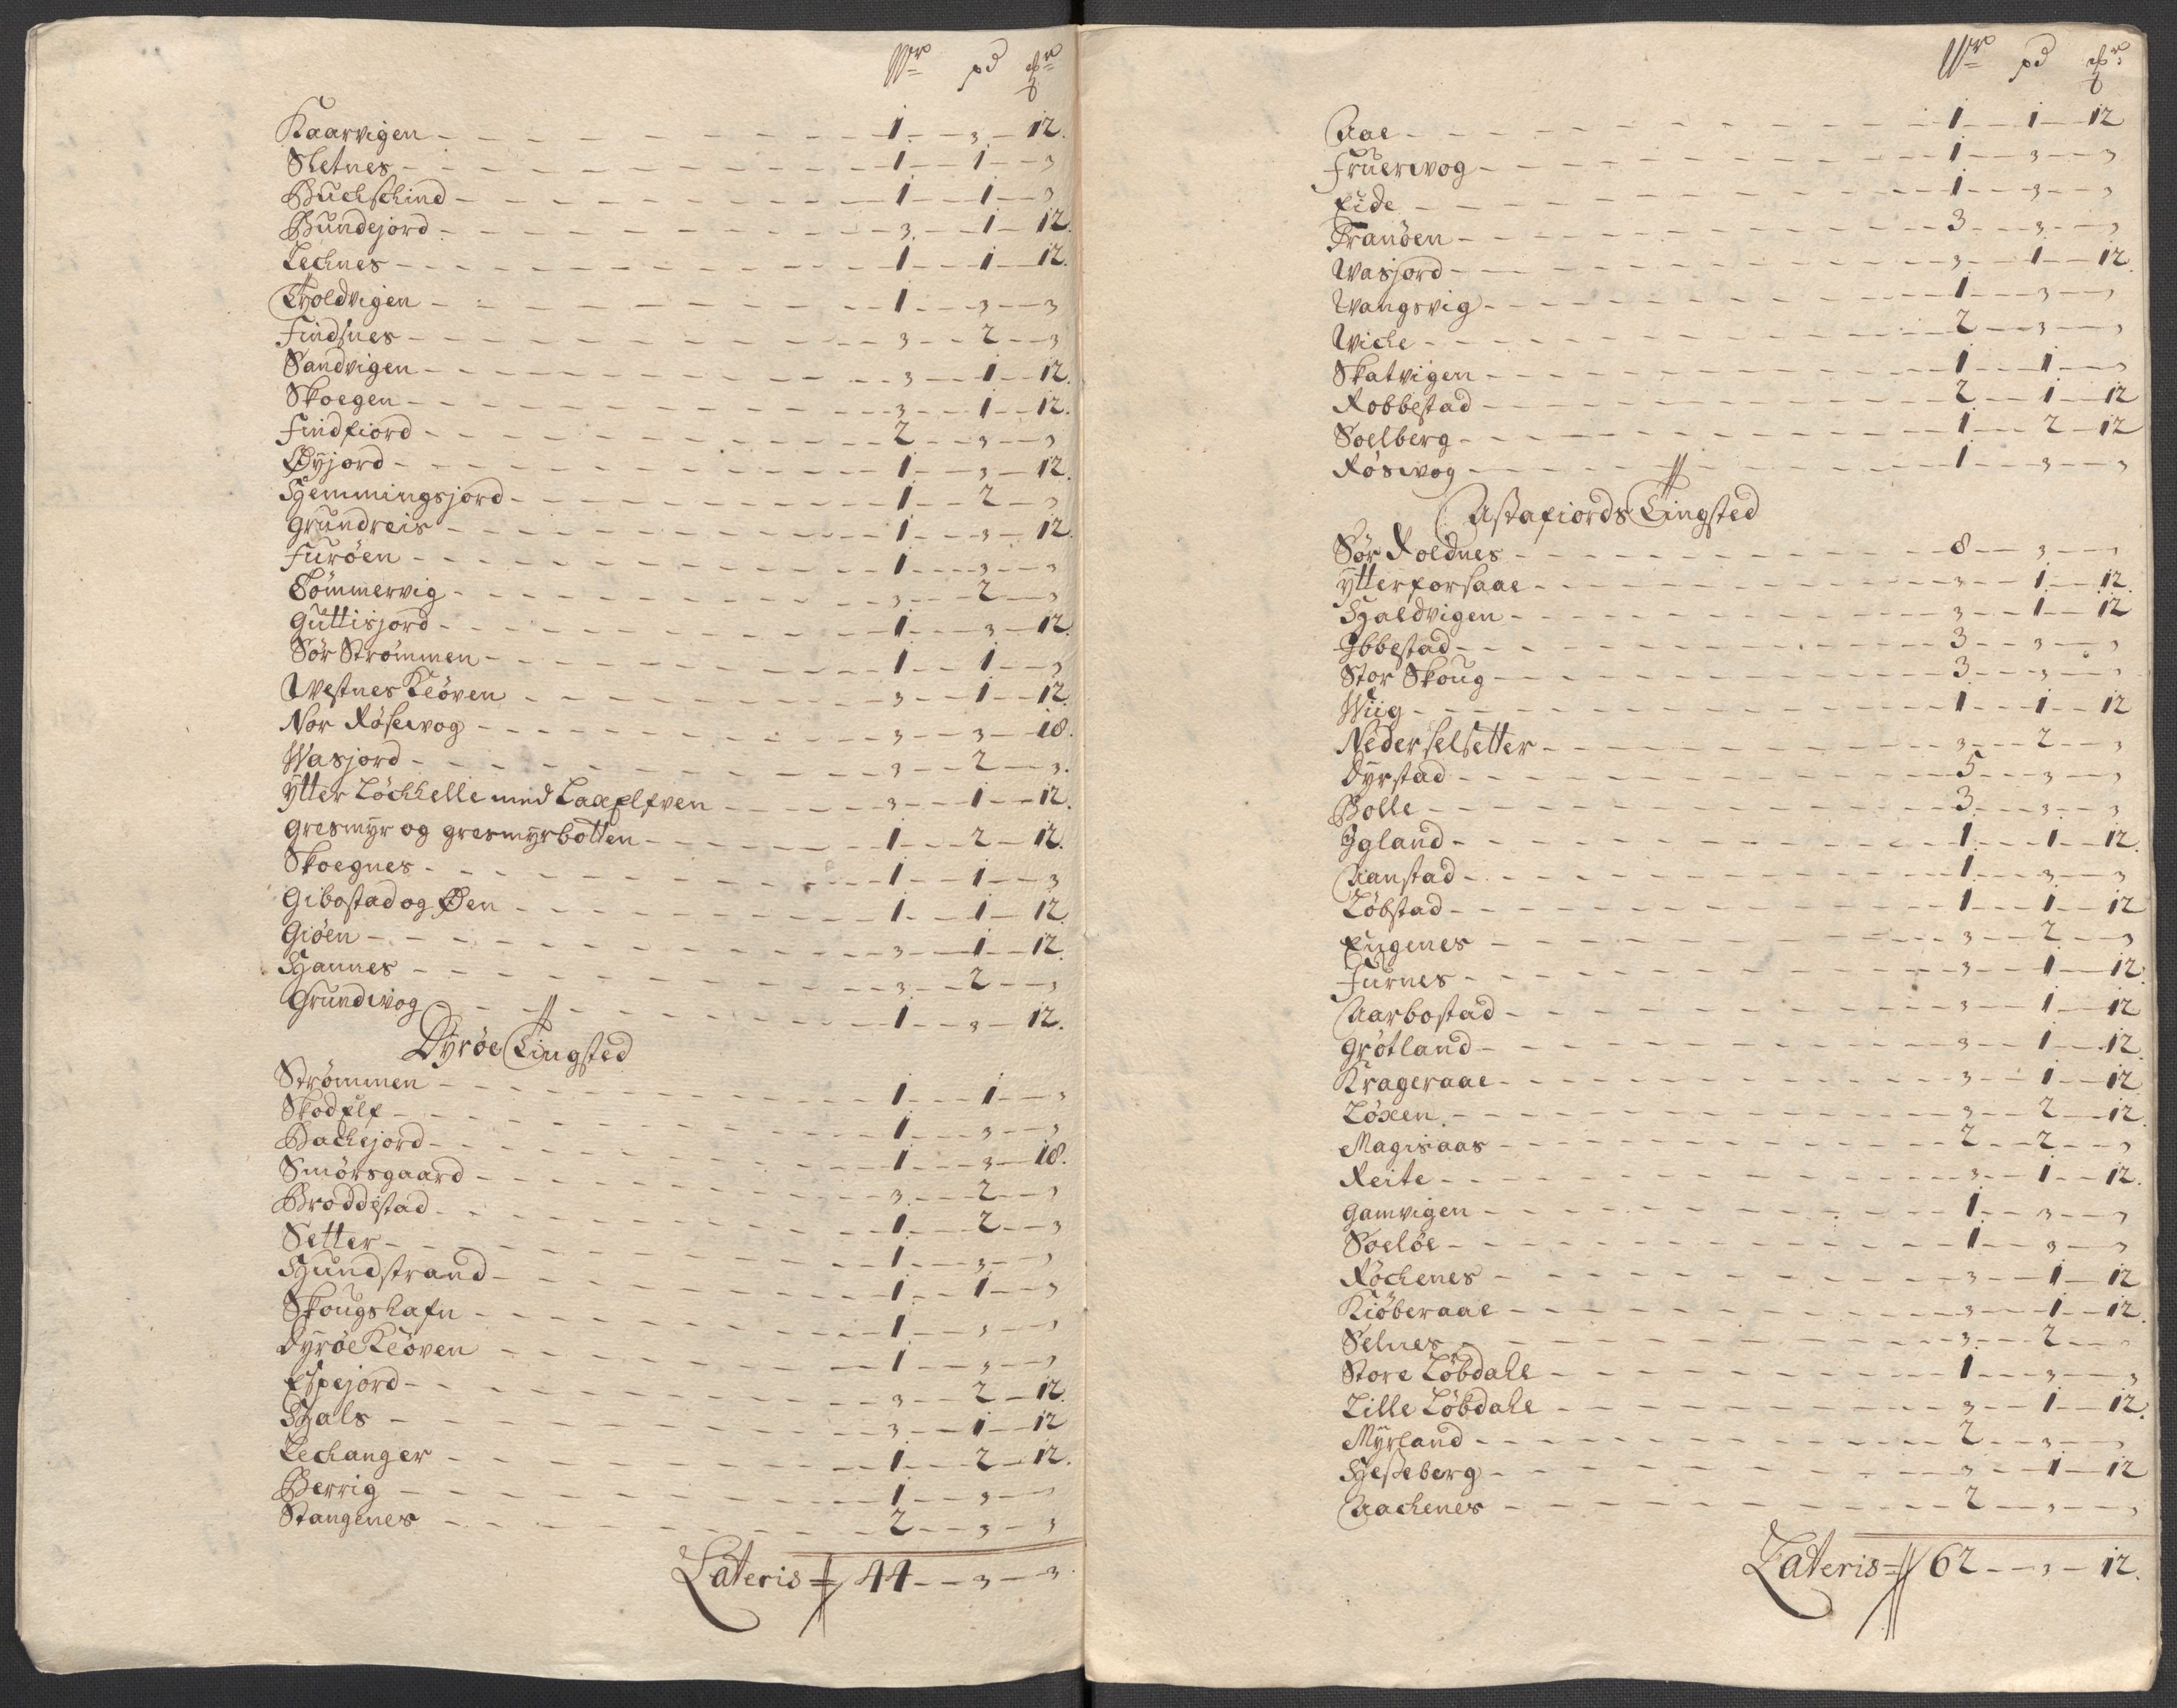 Wr pd
Kaarvigen - 1 - 3 - 12.
Sletnes - 1 - 1 - 3
Buchschind - 1 - 1 - 3
Bundejord - 3 - 1 - 12.
Lechnes - 1 - 1 - 12.
Tyoldvigen - 1 - 3 - 3
Findsnes - 3 - 2 - 3
Sandvigen - 3 - 1 - 12.
Skoegen - 3 - 1 - 12.
Findfiord - 2 - 3 - 3
Øyjord - 1 - 3 - 12.
Hemmingsjord - 1 - 2 - 3
Grundreis - 1 - 3 - 12.
Furøen - 1 - 3 - 3
Tømmervig - 3 - 2 - 3
Guttisjord - 1 - 3 - 12.
Sør Strømmen - 1 - 1 - 3
Westnes Kløven - 3 - 1 - 12.
Nor Røsewog - 3 - 3 - 18.
Wasjord - 3 - 2 - 3.
Ytter Løchhelle med Laxelfven - 3 - 1 - 12.
Gresmyr og gresmyrbotten - 1 - 2 - 12.
Skoegnes - 1 - 1 - 3
Gibostad og Øen - 1 - 1 - 12.
Giøen - 3 - 1 - 12.
Hannes - 3 - 2 - 3
Grundwog - 1 - 3 - 12.
Dyrøe Tingsted
Strømmen - 1 - 1 - 3
Skodelf - 1 - 3 - 3
Bachejord - 1 - 3 - 18.
Smørsgaard - 3 - 2 - 3
Broddestad - 1 - 2 - 3
Setter - 1 - 3 - 3
Hundstrand - 1 - 1 - 3
Skougshafn - 1 - 3 - 3
Dyrøe Kløven - 1 - 3 - 3
Espejord - 3 - 2 - 12.
Hals - 3 - 1 - 12
Lechanger - 1 - 2 - 12.
Berrig - 1 - 3 - 3
Stangenes - 2 - 3 - 3
Lateris 44 - 3 - 3
Wr pd
Aae - 1 - 1 - 12
Fruerwog - 1 - 3 - 3
Eide - 1 - 3 - 3
Tranøen - 3 - 3 - 3
Wasjord - 3 - 1 - 12.
Wangsvig - 1 - 3 - 3
Wiche - 2 - 3 - 3
Skatvigen - 1 - 1 - 3
Robbestad - 2 - 1 - 12
Soelberg - 1 - 2 - 12
Røswog - 1 - 3 - 3
Astafiords Tingsted
Sør Roldnes - 8 - 3 - 3
Ytterforsaae - 3 - 1 - 12.
Haldvigen - 3 - 1 - 12
Ibbestad - 3 - 3 - 3
Stor Skoug - 3 - 3 - 3
Wiig - 1 - 1 - 12
Nederselsetter - 3 - 2 - 3
Dyrstad - 5 - 3 - 3
Bolle - 3 - 3 - 3
Igland - 1 - 1 - 12.
Aanstad - 1 - 3 - 3
Løbstad - 1 - 1 - 12
Engenes - 3 - 2 - 3
Furnes - 3 - 1 - 12.
Aarbostad - 3 - 1 - 12
Grøtland - 3 - 1 - 12.
Krageraae - 3 - 1 - 12
Løxen - 3 - 2 - 12.
Magisaas - 2 - 2 - 3
Reite - 3 - 1 - 12.
Gamvigen - 1 - 3 - 3
Soeløe - 1 - 3 - 3
Røchenes - 3 - 1 - 12
Kiøberaae - 3 - 1 - 12.
Selnes - 3 - 2 - 3
Store Løbdahl - 1 - 3 - 3
Lille Løbdahl - 3 - 1 - 12.
Myrland - 2 - 3 - 3
Hesseberg - 3 - 1 - 12
Aachenes - 2 - 3 - 3
Lateris 62 - 3 - 12.